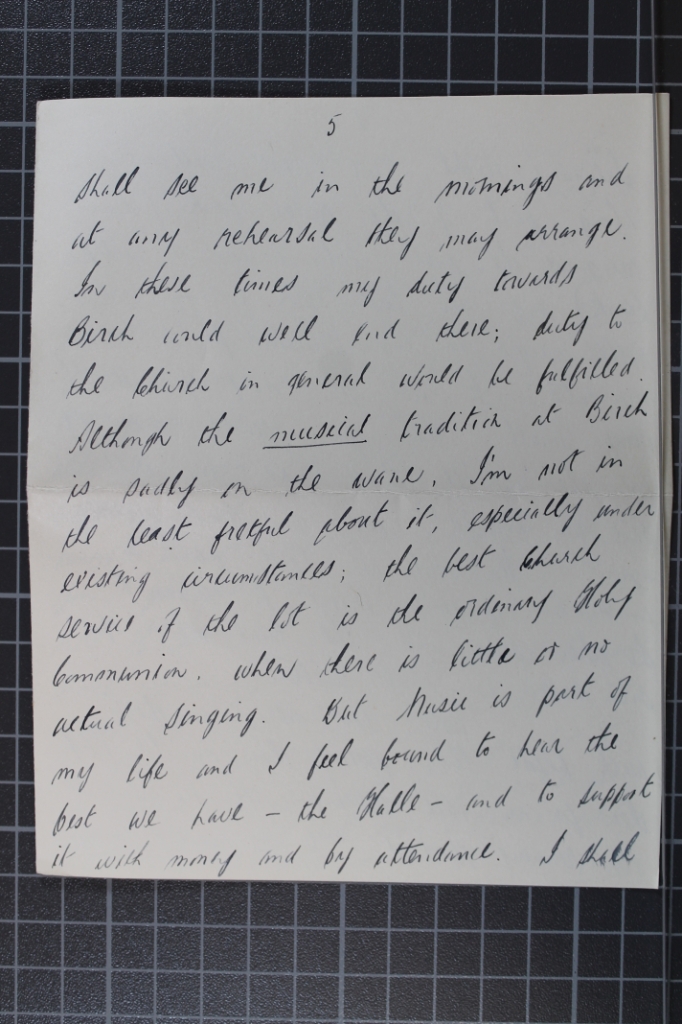 5
shall see me in the mornings and
at any rehearsal they may arrange.
In these times my duty towards
Birch could well end there; duty to
the Church in general would be fulfilled.
Although the musical tradition at Birch
is sadly on the wane, I'm not in
the least fretful about it, especially under
existing circumstances; the best Church
service of the lot is the ordinary Holy
Communion, when there is little or no
actual singing. But Music is part of
my life and I feel bound to hear the
best we have – the Halle – and to support
it with money and by attendance. I shall